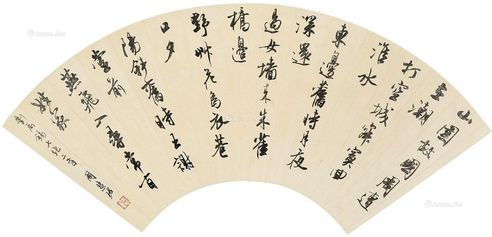 山圍故國周遭
在潮
打空城寂寞回
淮水
東邊舊時月夜
深還
過女墻来朱雀
橋邊
野艸花烏衣巷
口夕
陽斜舊時王謝
堂前
燕飛入尋常百
姓家
劉禹錫七絕二首 周慧珺